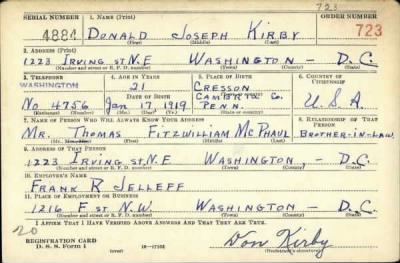 723
SERIAL NUMBER 1. NAME (Print) ORDER NUMBER
4884 DONALD JOSEPH KIRBY 723
(First) (Middle) (Last)
2. ADDRESS (Print)
1223 IRVING ST N.E WASHINGTON - D.C.
(Number and street or R. F. D. number) (Town) (County) (State)
3. TELEPHONE 4. AGE IN YEARS 5. PLACE OF BIRTH 6. COUNTRY OF CITIZENSHIP
WASHINGTON 21 CRESSON
DATE OF BIRTH CAMBRIA CO.
NO 4756 JAN 17 1919 PENN. U.S.A.
(Exchange) (Number) (Mo.) (Day) (Yr.) (State or country)
7. NAME OF PERSON WHO WILL ALWAYS KNOW YOUR ADDRESS 8. RELATIONSHIP OF THAT PERSON
MR. THOMAS FITZWILLIAM MCPHAUL BROTHER-IN-LAW
(Mr., Mrs., Miss) (First) (Middle) (Last)
9. ADDRESS OF THAT PERSON
1223 IRVING ST N.E WASHINGTON, - D.C.
(Number and street or R. F. D. number) (Town) (County) (State)
10. EMPLOYER'S NAME
FRANK R JELLEFF
11. PLACE OF EMPLOYMENT OR BUSINESS
1216 F ST N.W. WASHINGTON - D.C.
(Number and street or R. F. D. number) (Town) (County) (State)
I AFFIRM THAT I HAVE VERIFIED ABOVE ANSWERS AND THAT THEY ARE TRUE.
20
REGISTRATION CARD
D. S. S. Form 1 16-17105 Don Kirby